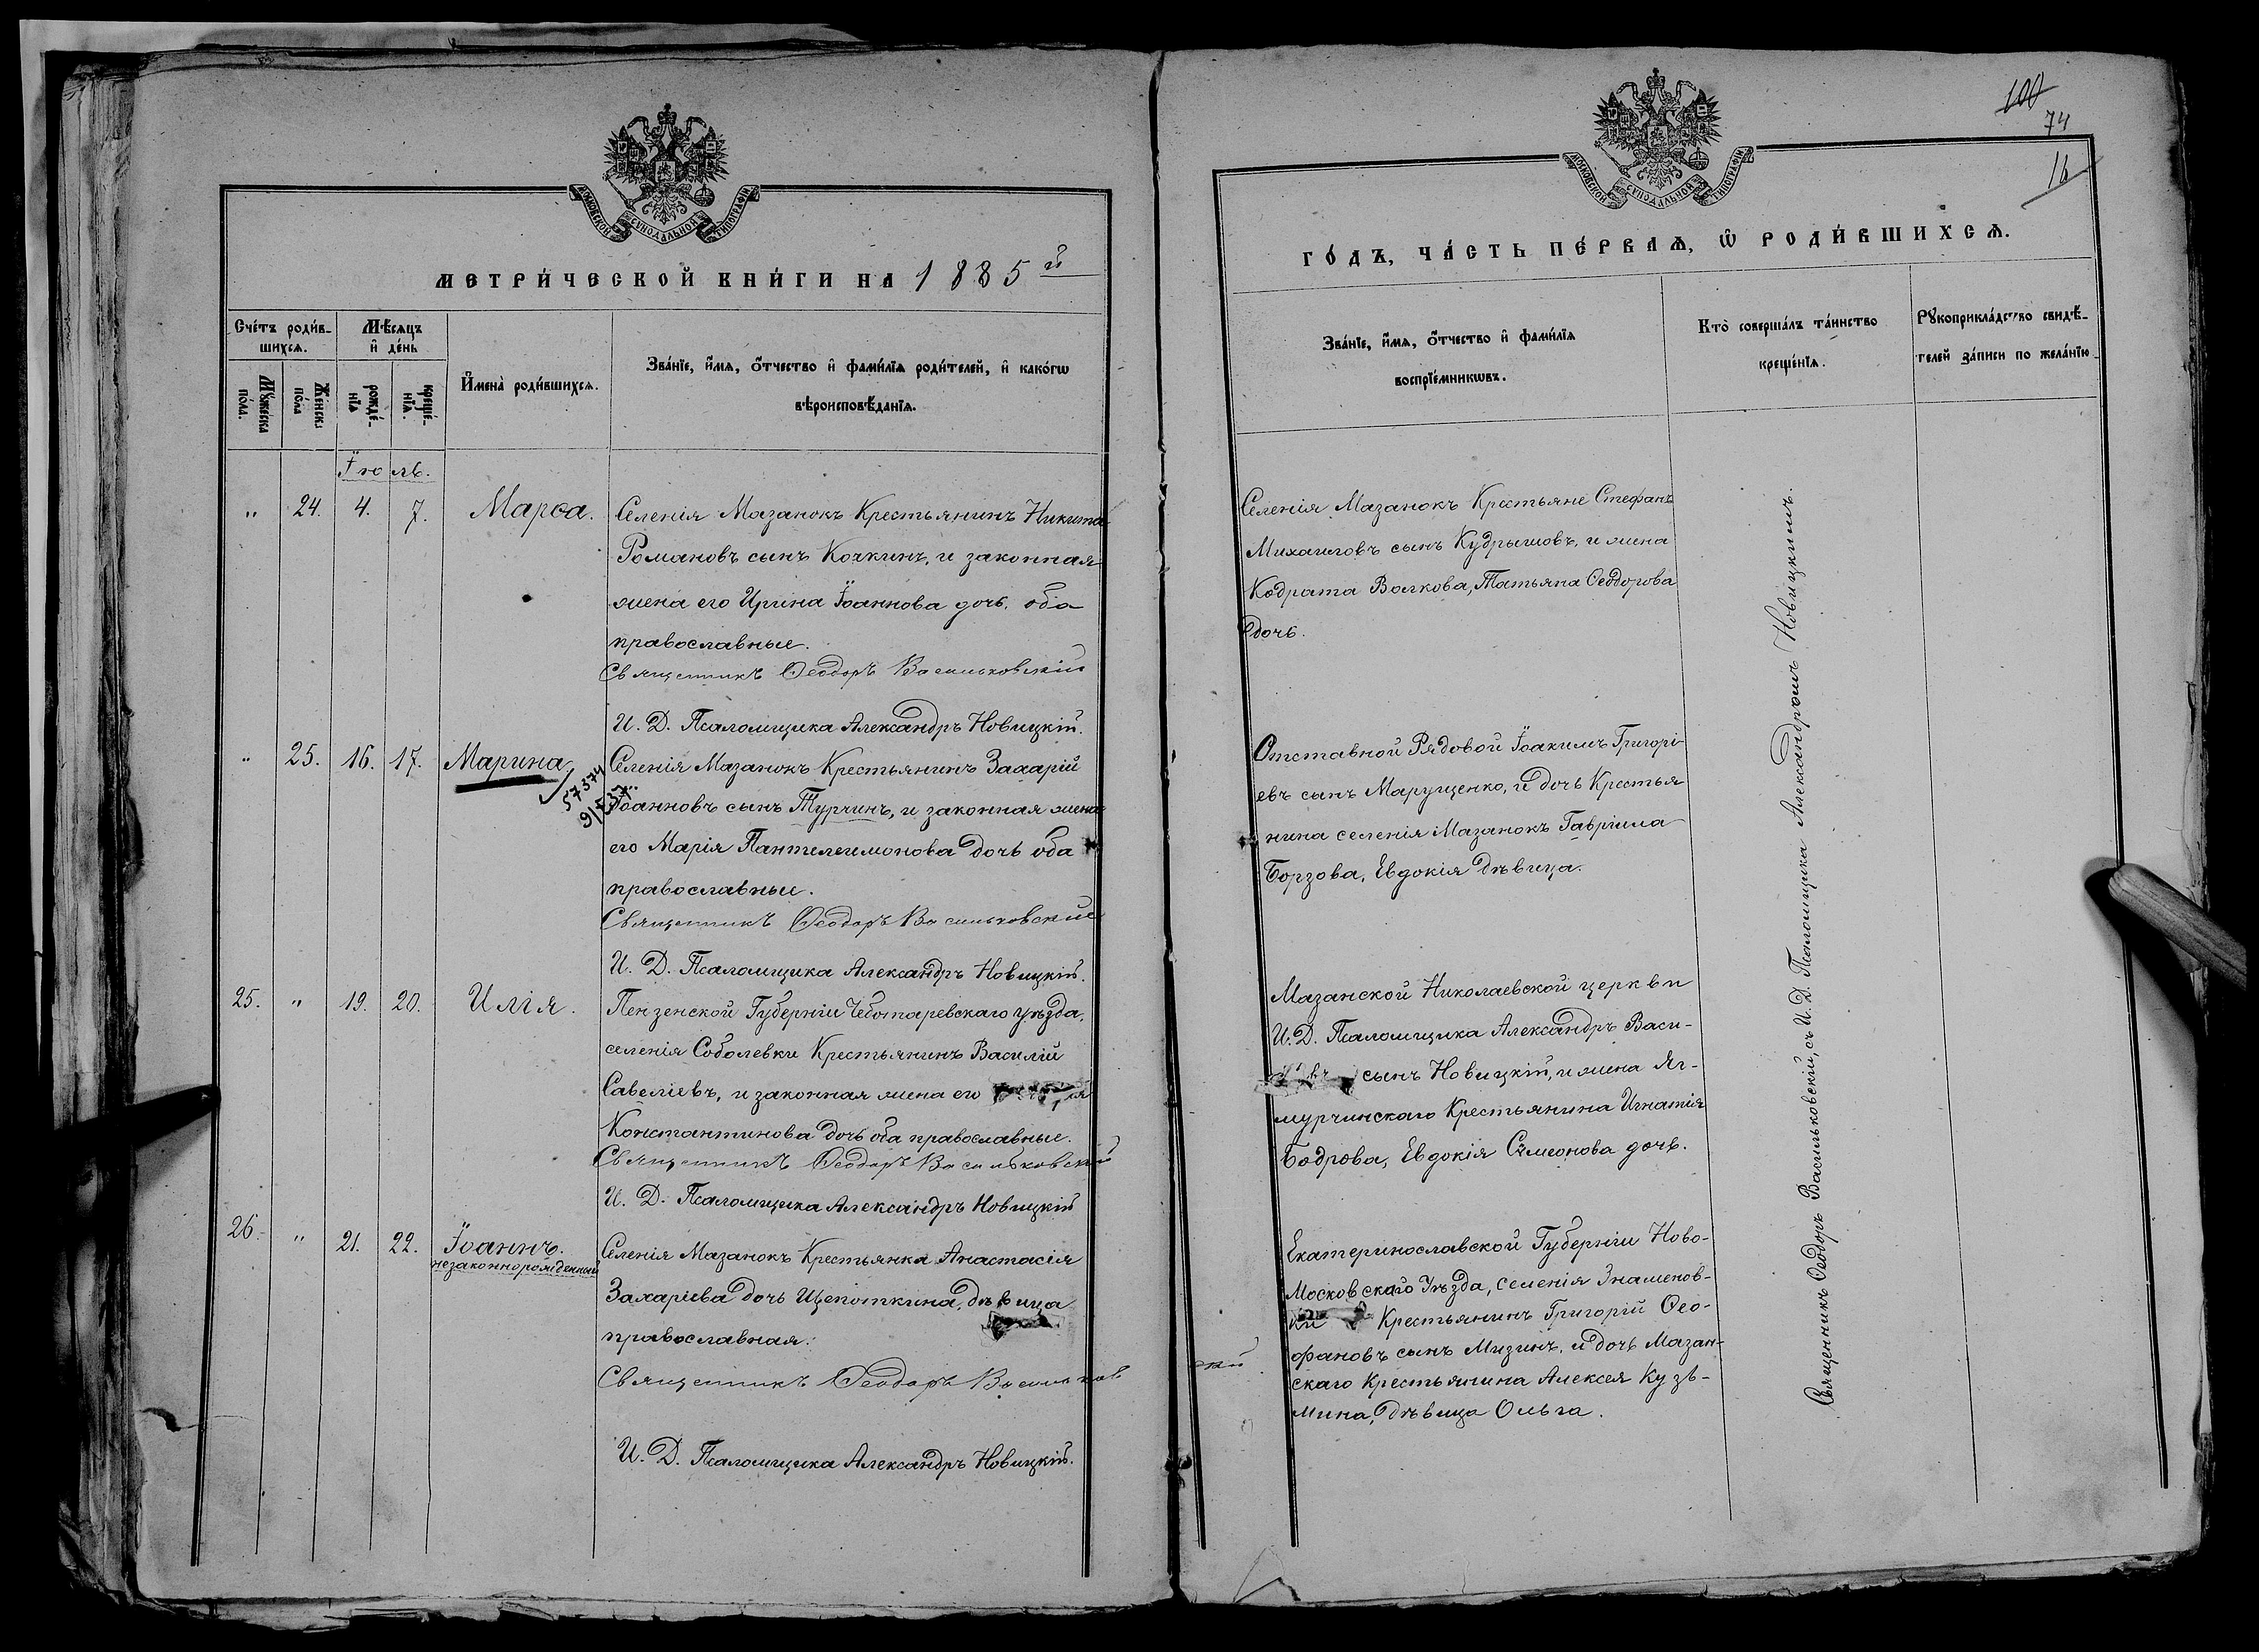 МОСКОВСКОЙ СУНОДАЛЬНОЙ ТИПОГРАФИИ
МЕТРИ́ЧЕСКОЙ КНИ́ГИ НА 1885й
Сче́тъ роди́в-
шихсѧ.
Мѣ́сѧцъ
и҆ де́нь
И҆мена̀ роди́вшихсѧ.
Зва́нїе, и҆́мѧ, ѻ҆́тчество и҆ фами́лїѧ роди́телей, и҆ како́гѡ
вѣроисповѣ́данїѧ.
Мꙋ́жеска
по́ла.
Же́нска
по́ла
рожде́-
нїѧ
креще́-
нїѧ.
Іюль.
" 24. 4. 7. Марѳа.
Селенія Мазанокъ Крестьянинъ Никита
Романовъ сынъ Кочкинъ, и законная
жена его Ирина Іоаннова дочь, оба
православные.
Священникъ Ѳеодоръ Васильковскій
И. Д. Псаломщика Александръ Новицкій.
" 25. 16. 17. Марина
57374
Селенія Мазанокъ Крестьянинъ Захарій
Іоанновъ сынъ Турчинъ, и законная жена
его Марія Пантелеимонова дочь оба
православные.
Священникъ Ѳеодоръ Васильковскій
И. Д. Псаломщика Александръ Новицкій.
25. " 19. 20. Илія.
Пензенской Губерніи Чеботаревскаго уѣзда,
селенія Соболевки Крестьянинъ Василій
Савеліевъ, и законная жена его
Константинова дочь оба православные.
Священникъ Ѳеодоръ Васильковскій
И. Д. Псаломщика Александръ Новицкій
26. " 21. 22. Іоаннъ.
незаконнорожденный
Селенія Мазанокъ Крестьянка Анастасія
Захаріева дочь Щепоткина, дѣвица
православная.
Священникъ Ѳеодоръ Васильков
ский
И. Д. Псаломщика Александръ Новицкій.
100
74
16
МОСКОВСКОЙ СУНОДАЛЬНОЙ ТИПОГРАФИИ
ГО́ДЪ, ЧА́СТЬ ПЕ́РВАѦ, Ѡ҆ РОДИ́ВШИХСѦ.
Зва́нїе, и҆́мѧ, ѻ҆́тчество и҆ фами́лїѧ
воспрїе́мникѡвъ.
Кто̀ соверша́лъ та́инство
креще́нїѧ.
Рꙋкоприкла́дство свидѣ́-
телей за́писи по жела́нїю
Селенія Мазанокъ Крестьяне Стефанъ
Михаиловъ сынъ Кудрышовъ, и жена
Кодрата Волкова, Татьяна Ѳеодорова
дочь.
Отставной Рядовой Іоакимъ Григорі-
евъ сынъ Марущенко, и дочь Крестья
нина селенія Мазанокъ Гавріила
Борзова, Евдокія дѣвица.
Мазанской Николаевской церкви
И. Д. Псаломщика Александръ Васи-
сынъ Новицкій, и жена Яг-
мурчинскаго Крестьянина Игнатія
Бодрова, Евдокія Сѵмеонова дочь.
Екатеринославской Губерніи Ново-
московскаго Уѣзда, селенія Знаменов-
ки Крестьянинъ Григорій Ѳео-
фановъ сынъ Мизинъ, и дочь Мазан-
скаго Крестьянина Алексея Кузь-
мина, дѣвица Ольга.
Священникъ Ѳеодоръ Васильковскій, съ И. Д. Псаломщика Александромъ Новицкимъ.